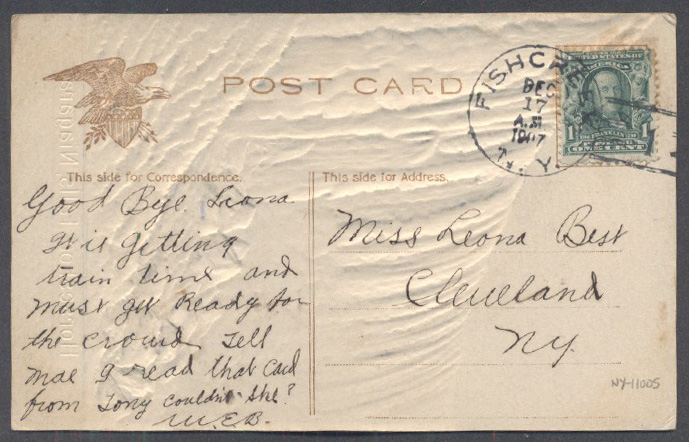 POST CARD
FISHCREEK
DEC
17
A.M
1907
N.Y.
UNITED STATES OF AMERICA
FRANKLIN
1 ONE CENT 1
This side for Correspondence.
This side for Address.
Good Bye. Leona
It is getting
train time and
must get Ready for
the crowd Tell
Mae I read that Card
from Tony couldn't she?
W.E.B.
Miss Leona Best
Cleveland
N.Y.
NY-11005